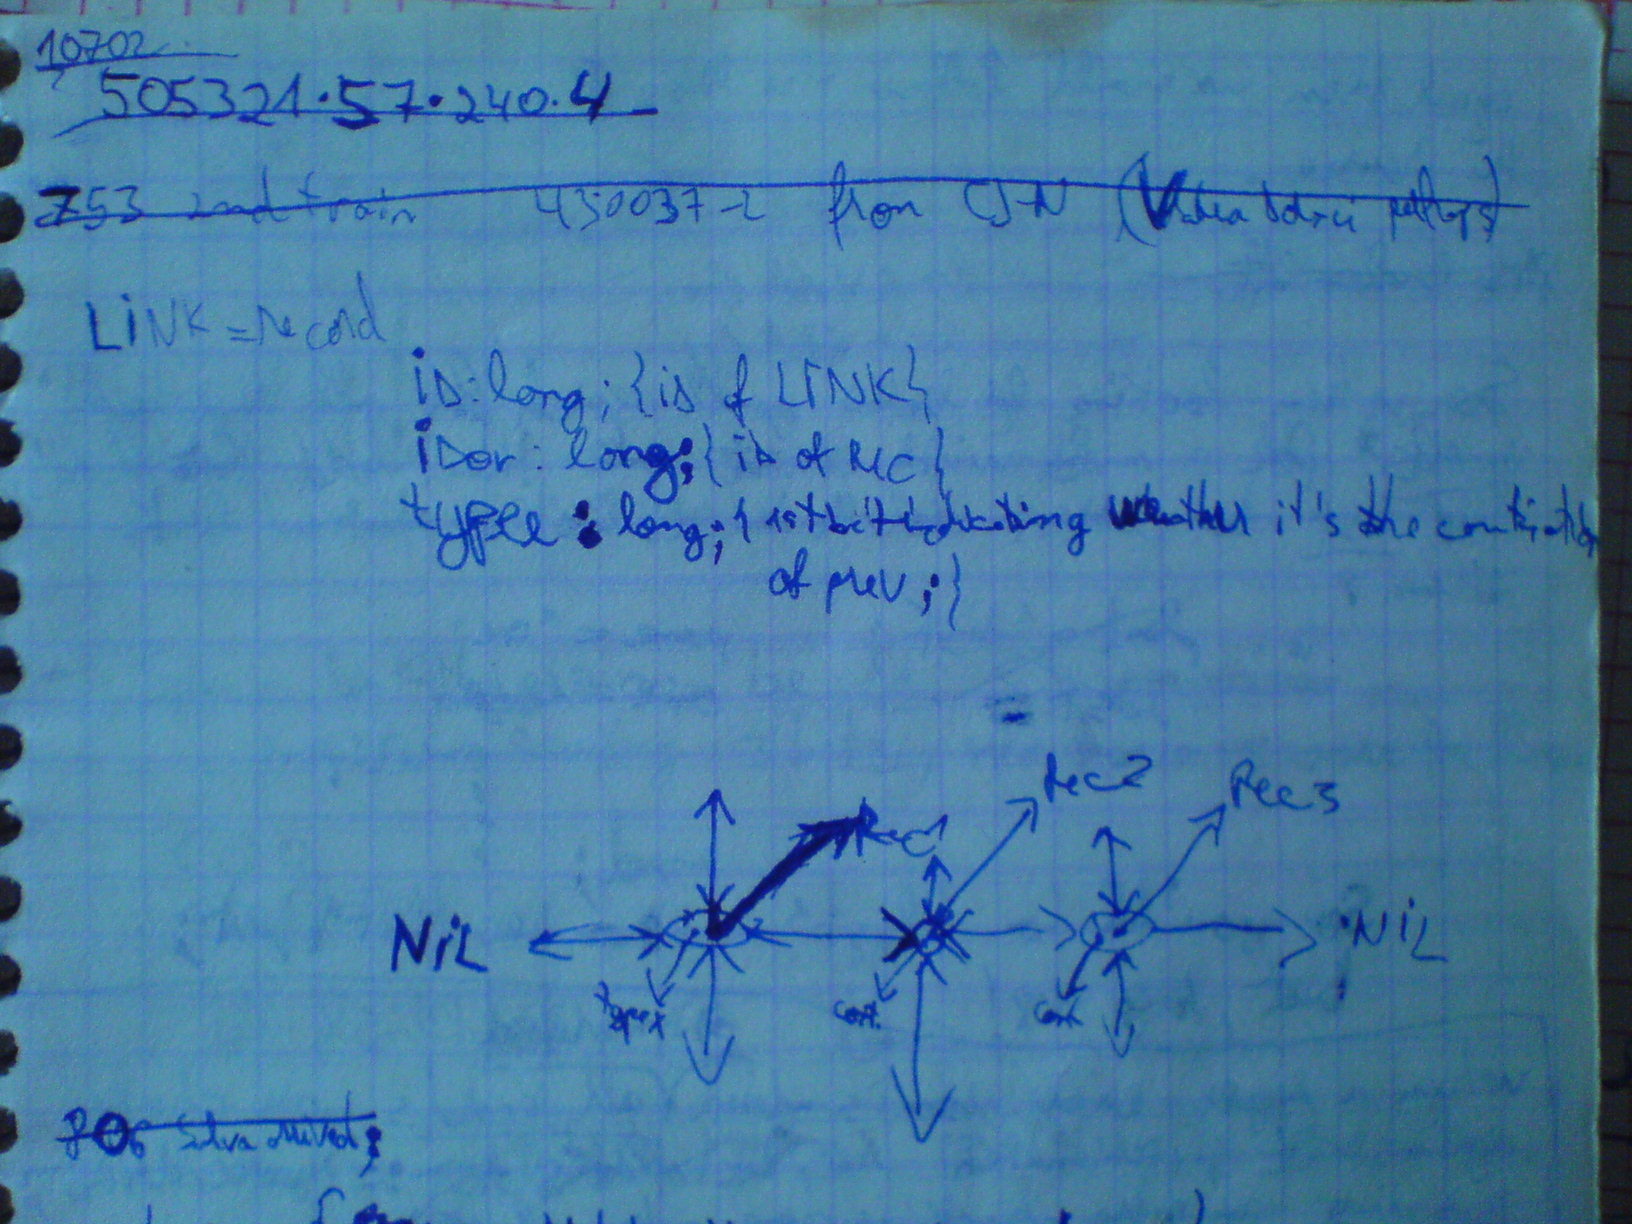 10702
505321.57.240.4
753 2nd train 450037-2 from CJ-N (Vatra Dornei
LiNK = record
iD: long; {iD of LiNK}
iDor: long; {iD of rec}
typee: long; { 1st bit indicating whether it's the continuation
of prev; }
Rec2
Rec3
Rec1
NiL
NiL
cont.
cont.